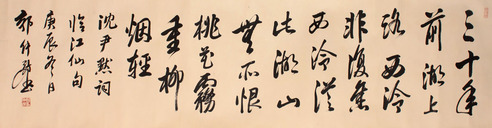 三十年
前湖上
路西泠
非復舊
西泠從
此湖山
無不恨
桃花霧
重柳
烟輕
沈尹默詞
臨江仙句
庚辰冬日
郭仲選書